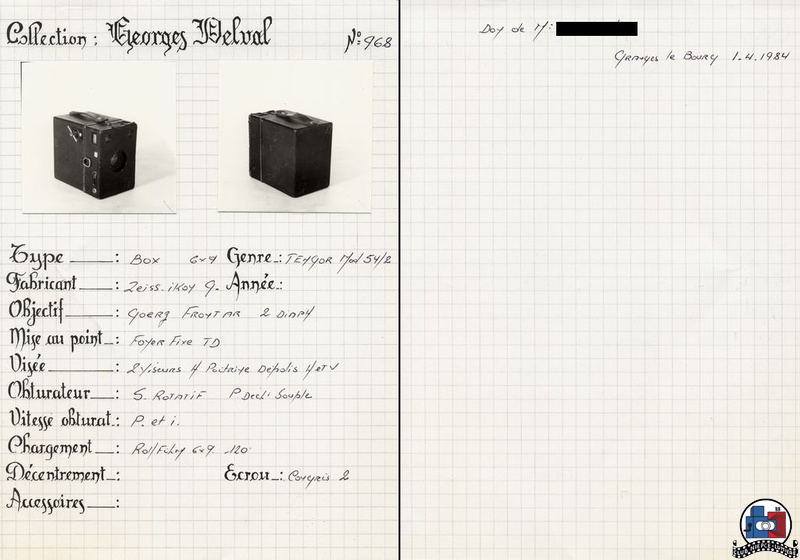 Collection : Georges Delval Nº 968
Type : Box 6x9 Genre : TENGOR Mod 54/2
Fabricant : Zeiss. ikon G. Année :
Objectif : Goerz FRONTAR 2 DIAPH
Mise au point : Foyer Fixe TD
Visée : 2 Viseurs A Poitrine Depolis H et V
Obturateur : S. ROTATIF P Decl: Souple
Vitesse obturat. : P. et i.
Chargement : RollFilm 6x9 120
Décentrement : Ecrou : Congrès 2
Accessoires :
Don de Mr:
Granges le Bourg 1.4.1984